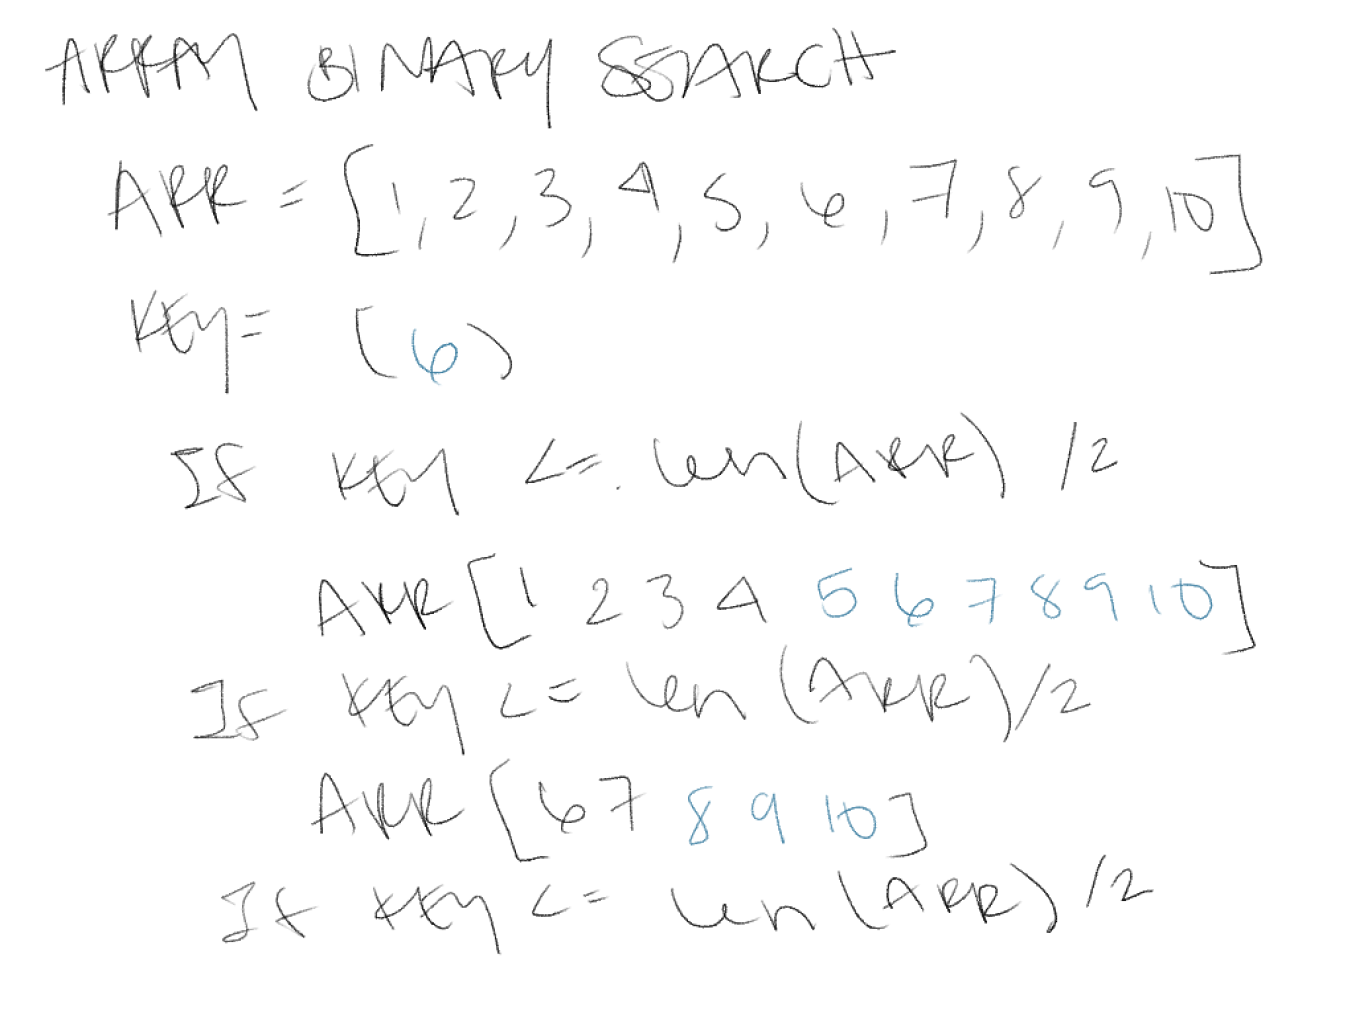 ARRAY BINARY SEARCH
ARR = [1, 2, 3, 4, 5, 6, 7, 8, 9, 10]
KEY = (6)
If KEY <= len(ARR) /2
ARR [1 2 3 4 5 6 7 8 9 10]
If KEY <= len (ARR)/2
ARR [6 7 8 9 10]
If KEY <= len (ARR) /2